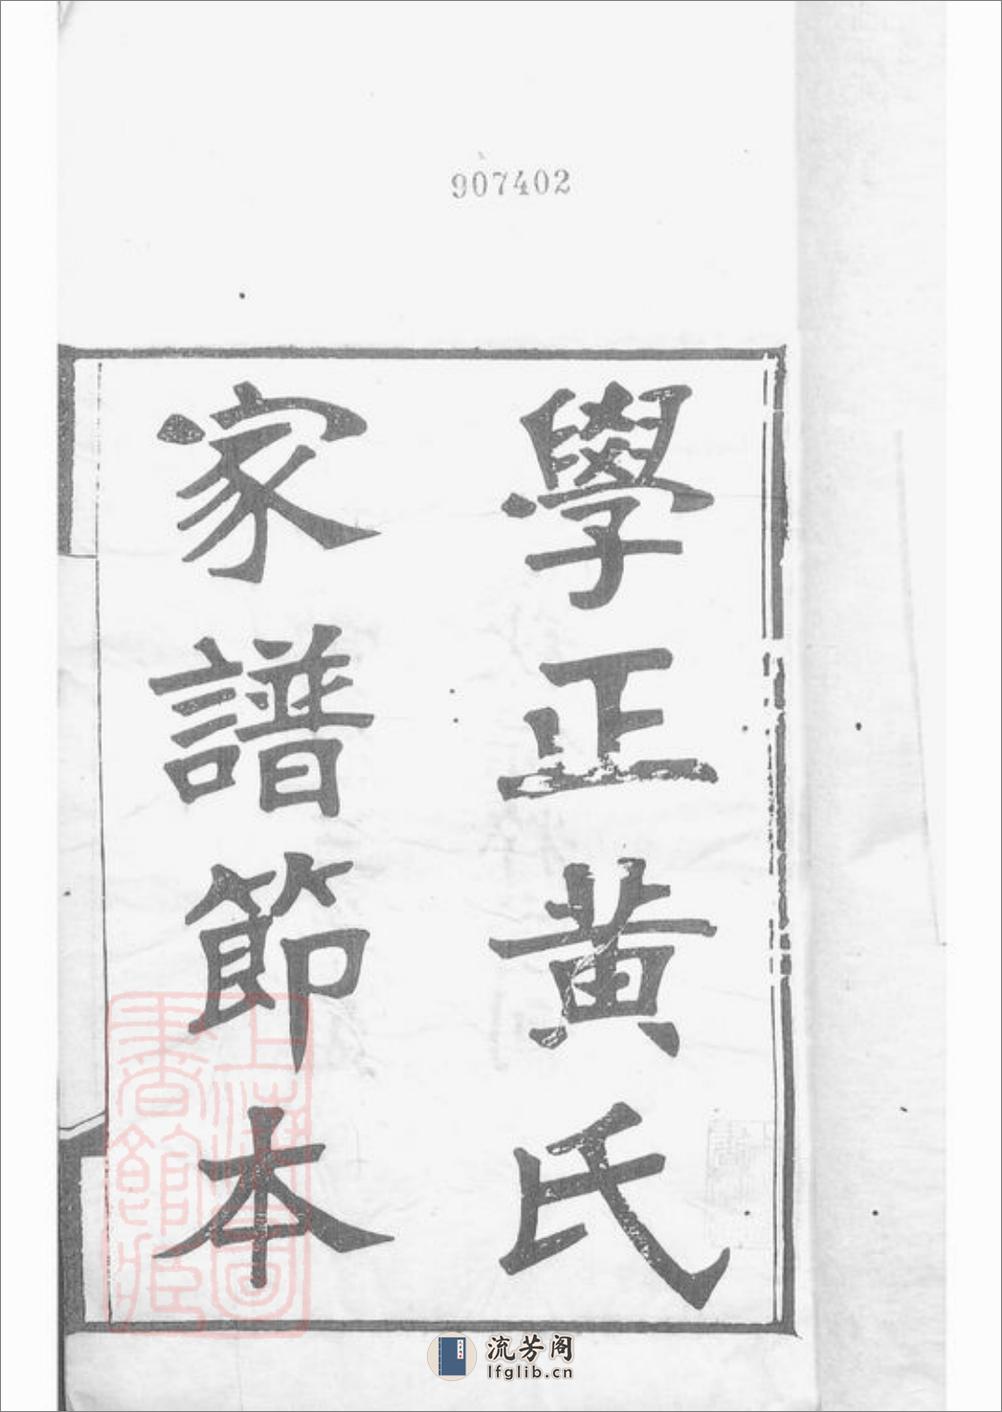 907402
學正黃氏
家譜節本
上海圖
書館藏
流芳阁
lfglib.cn